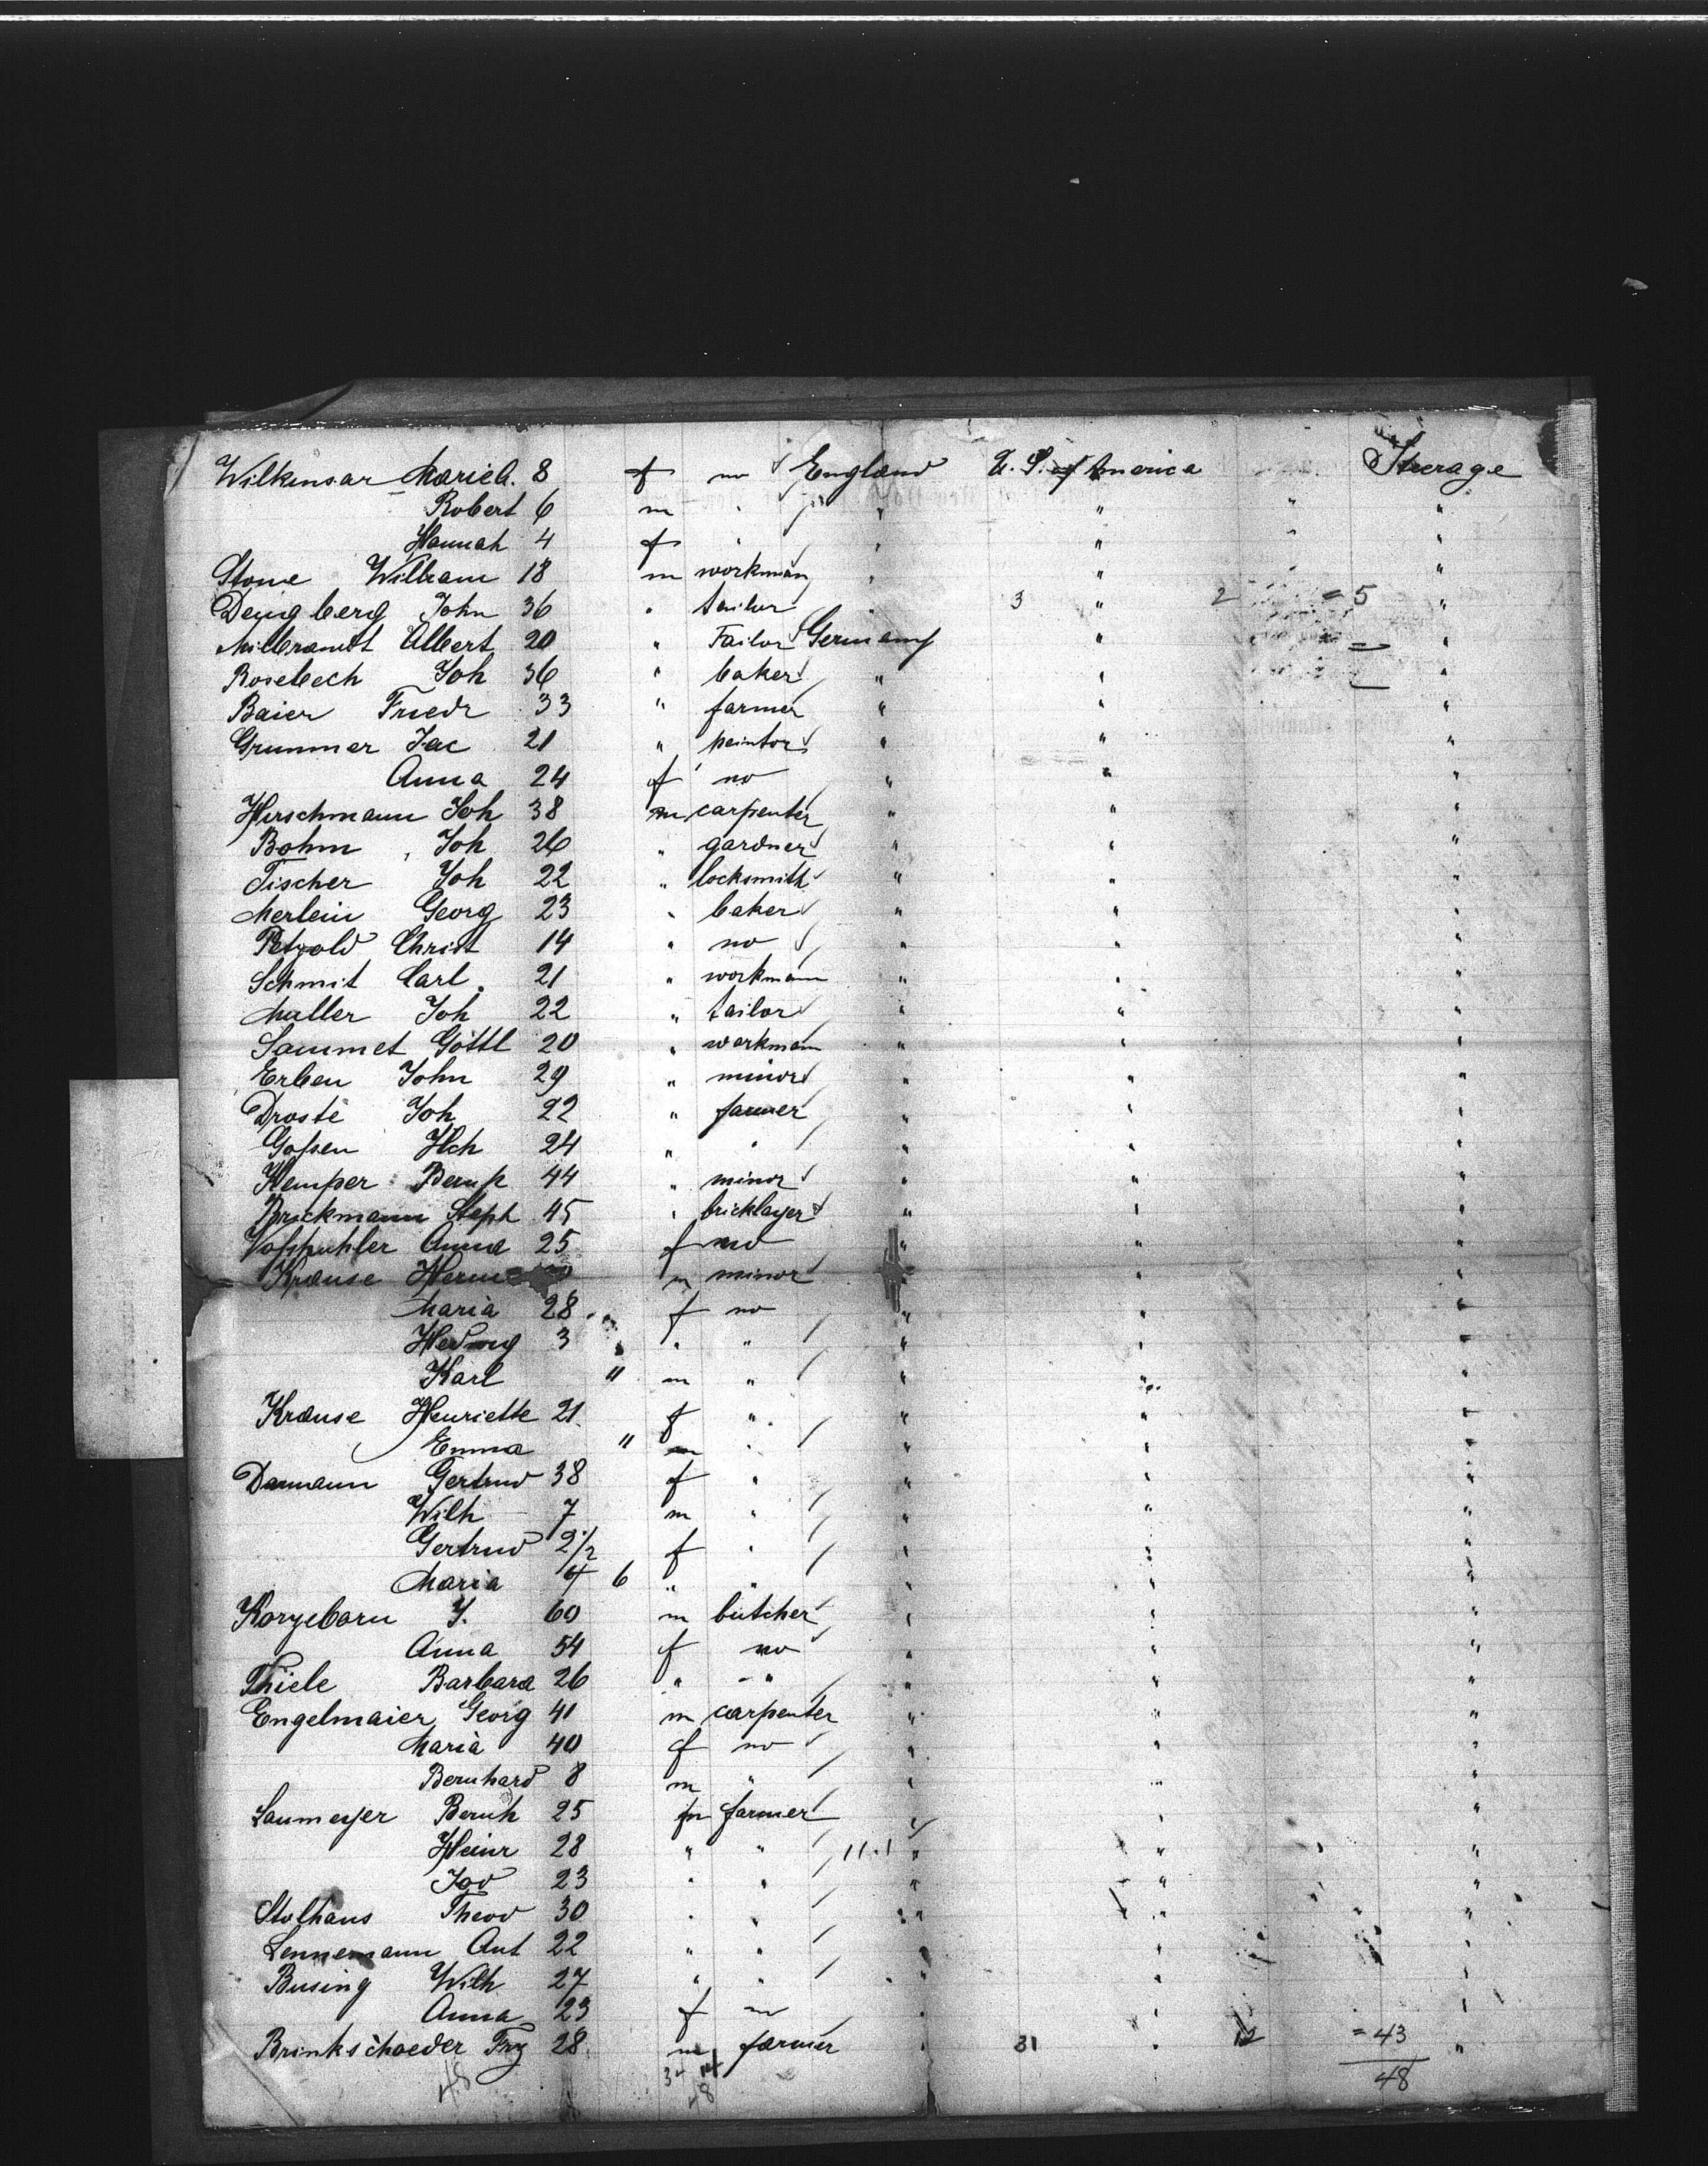 Wilkinsar Marie A. 8 f no England U. S. of America Steerage
Robert 6 m " " " " "
Hannah 4 f " " " " "
Stone William 18 m workman " " " "
Deingberg John 36 " tailor " 3 " 2 = 5 "
Milbrandt Albert 20 " Tailor Germany " = "
Rosebech Joh 36 " baker " " "
Baier Friedr 33 " farmer " " "
Grummer Jac 21 " peintor " " "
Anna 24 f no " " "
Hirschmann Joh 38 m carpenter " " "
Bohm Joh 26 " gardner " " "
Fischer Joh 22 " locksmith " " "
Merlein Georg 23 " baker " " "
Petzold Christ 14 " no " " "
Schmit Carl 21 " workmann " " "
Muller Joh 22 " tailor " " "
Sammet Gottl 20 " workmann " " "
Erben John 29 " minor " " "
Droste Joh 22 " farmer " " "
Gossen Hch 24 " " " " "
Kemper 44 " minor " " "
Brickmann Steph 45 " bricklayer " " "
Anna 25 f no " " "
Krause Herm m minor " " "
Maria 28 f no " " "
Hedwig 3 " " " " "
Karl " m " " " "
Krause Henriette 21 f " " " "
Emma " m " " " "
Darmann Gertrud 38 f " " " "
Wilh 7 m " " " "
Gertrud 2 1/2 f " " " "
Maria 4 6 " " " " "
Korzeborn J. 60 m butcher " " "
Anna 54 f no " " "
Thiele Barbara 26 " " " " "
Engelmaier Georg 41 m carpenter " " "
Maria 40 f no " " "
Bernhard 8 m " " " "
Laumeyer Bernh 25 m farmer " " "
Heinr 28 " " 11.1 " " "
Jos 23 " " " " "
Stolhaus Theod 30 " " " " "
Lennemann Ant 22 " " " " "
Busing Wilh 27 " " " " "
Anna 23 f no " " "
Brinkschoeder Frz 28 m farmer 31 " 12 = 43 "
48 34 14 48
48